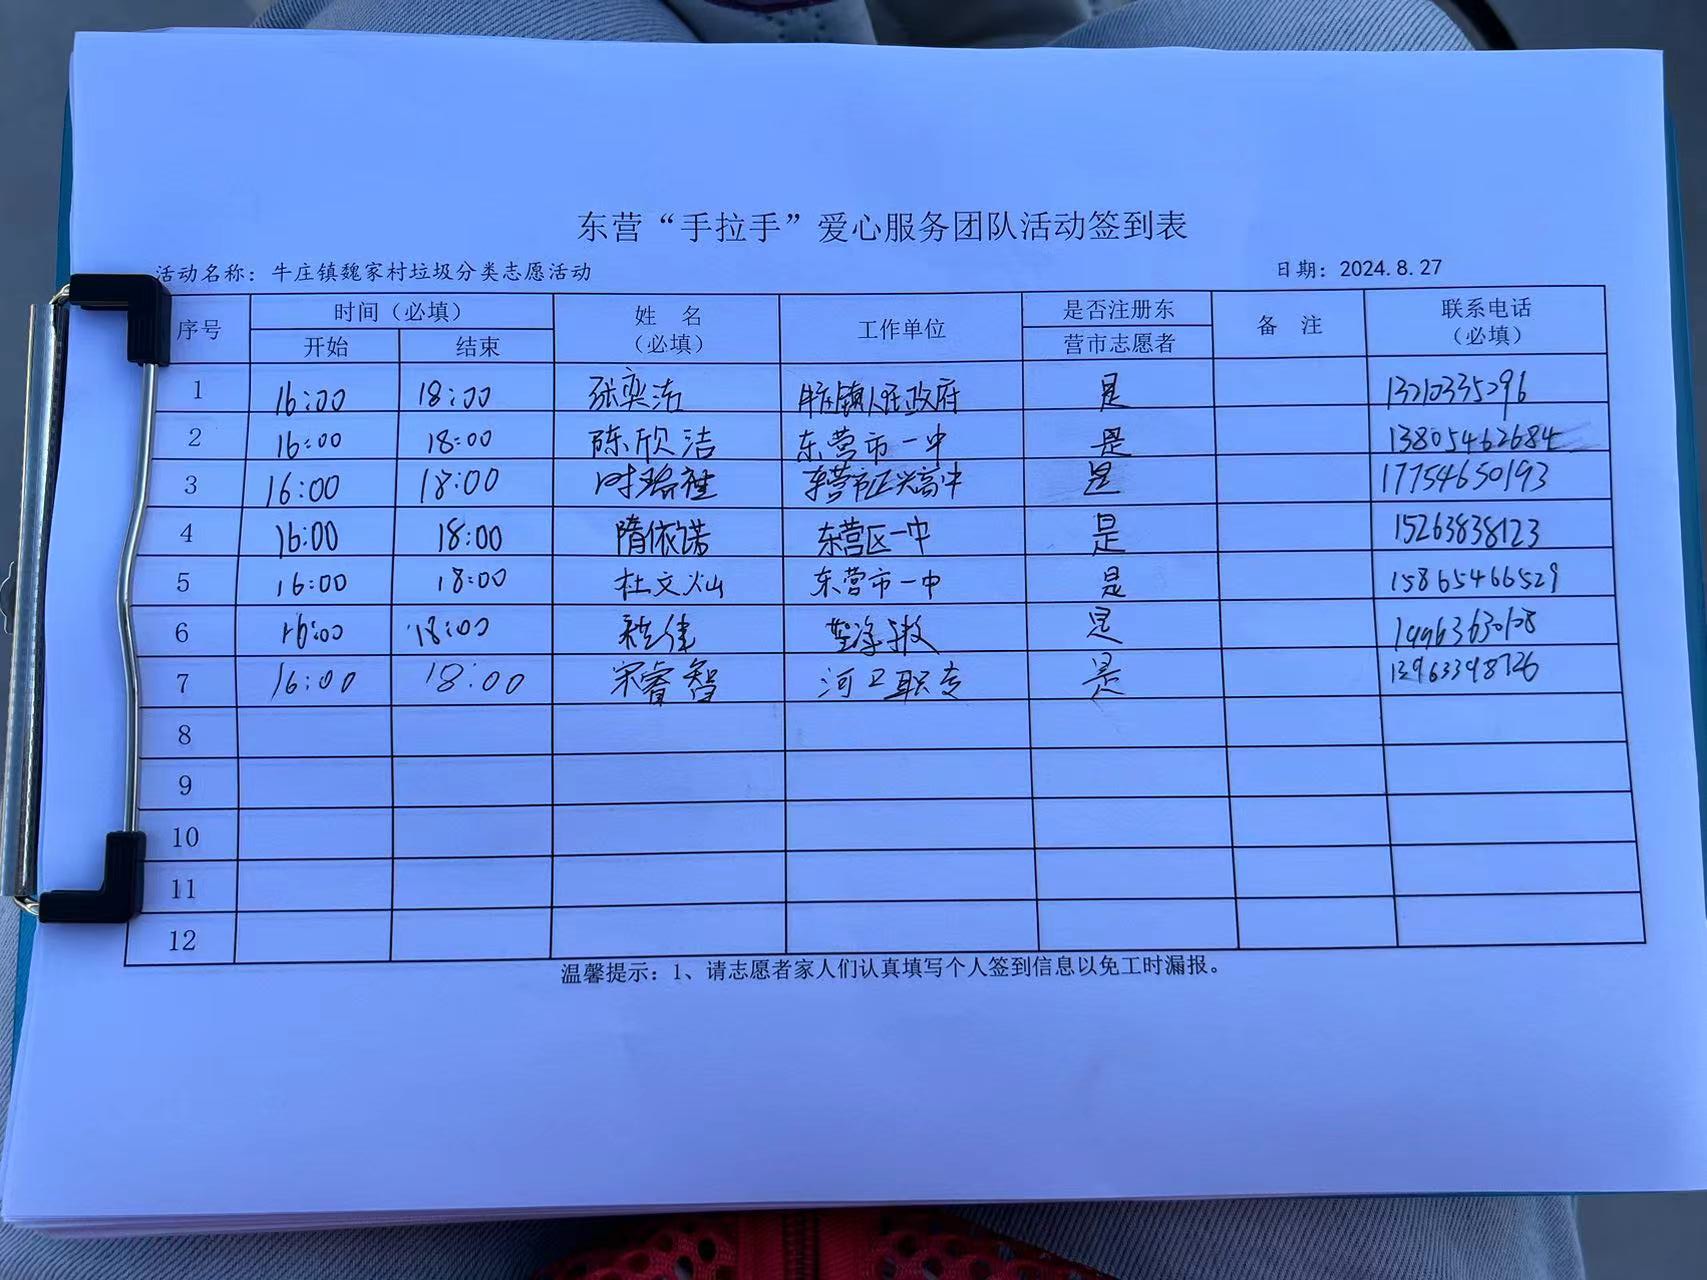 东营“手拉手”爱心服务团队活动签到表
活动名称：牛庄镇魏家村垃圾分类志愿活动 日期：2024.8.27
序号 时间（必填） 姓 名（必填） 工作单位 是否注册东营市志愿者 备 注 联系电话（必填）
开始 结束
1 16:00 18:00 张奕洁 牛庄镇人民政府 是 13210335296
2 16:00 18:00 陈欣洁 东营市一中 是 13805462684
3 16:00 18:00 时 东营市正兴高中 是 17754650193
4 16:00 18:00 隋依诺 东营区一中 是 15263838123
5 16:00 18:00 杜文灿 东营市一中 是 15865466529
6 16:00 18:00 是
7 16:00 18:00 宋睿智 河卫职专 是
8
9
10
11
12
温馨提示：1、请志愿者家人们认真填写个人签到信息以免工时漏报。